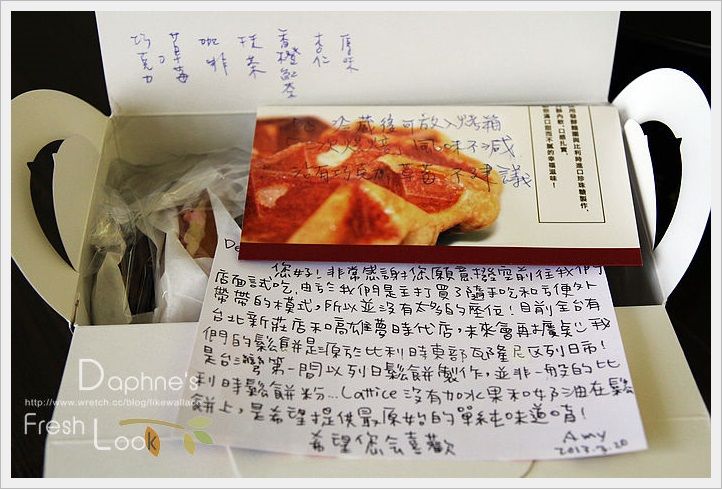 巧克力 草莓 咖啡 抹茶 香橙 杏仁 原味
冷藏後可放入烤箱
二次烘烤，風味不減
巧克力 草莓 不建議
用發酵麵團與比利時進口珍珠糖製作，
鬆內軟，口感扎實，
您滿口甜而不膩的幸福滋味！
De
您好！非常感謝您願意撥空前往我們
店面試吃，由於我們是主打買了隨手吃和方便外
帶帶的模式，所以並沒有太多的座位！目前全台有
台北新莊店和高雄夢時代店，未來會再擴点！我
們的鬆餅是源於比利時東部瓦隆尼區列日市！
是台灣第一間以列日鬆餅製作，並非一般的比
利時鬆餅粉…Lattice 沒有加水果和奶油在鬆
餅上，是希望提供最原始的單純味道唷！
希望您會喜歡
Amy
2013.3.20
Daphne's
http://www.wretch.cc/blog/likewallace
Fresh Look